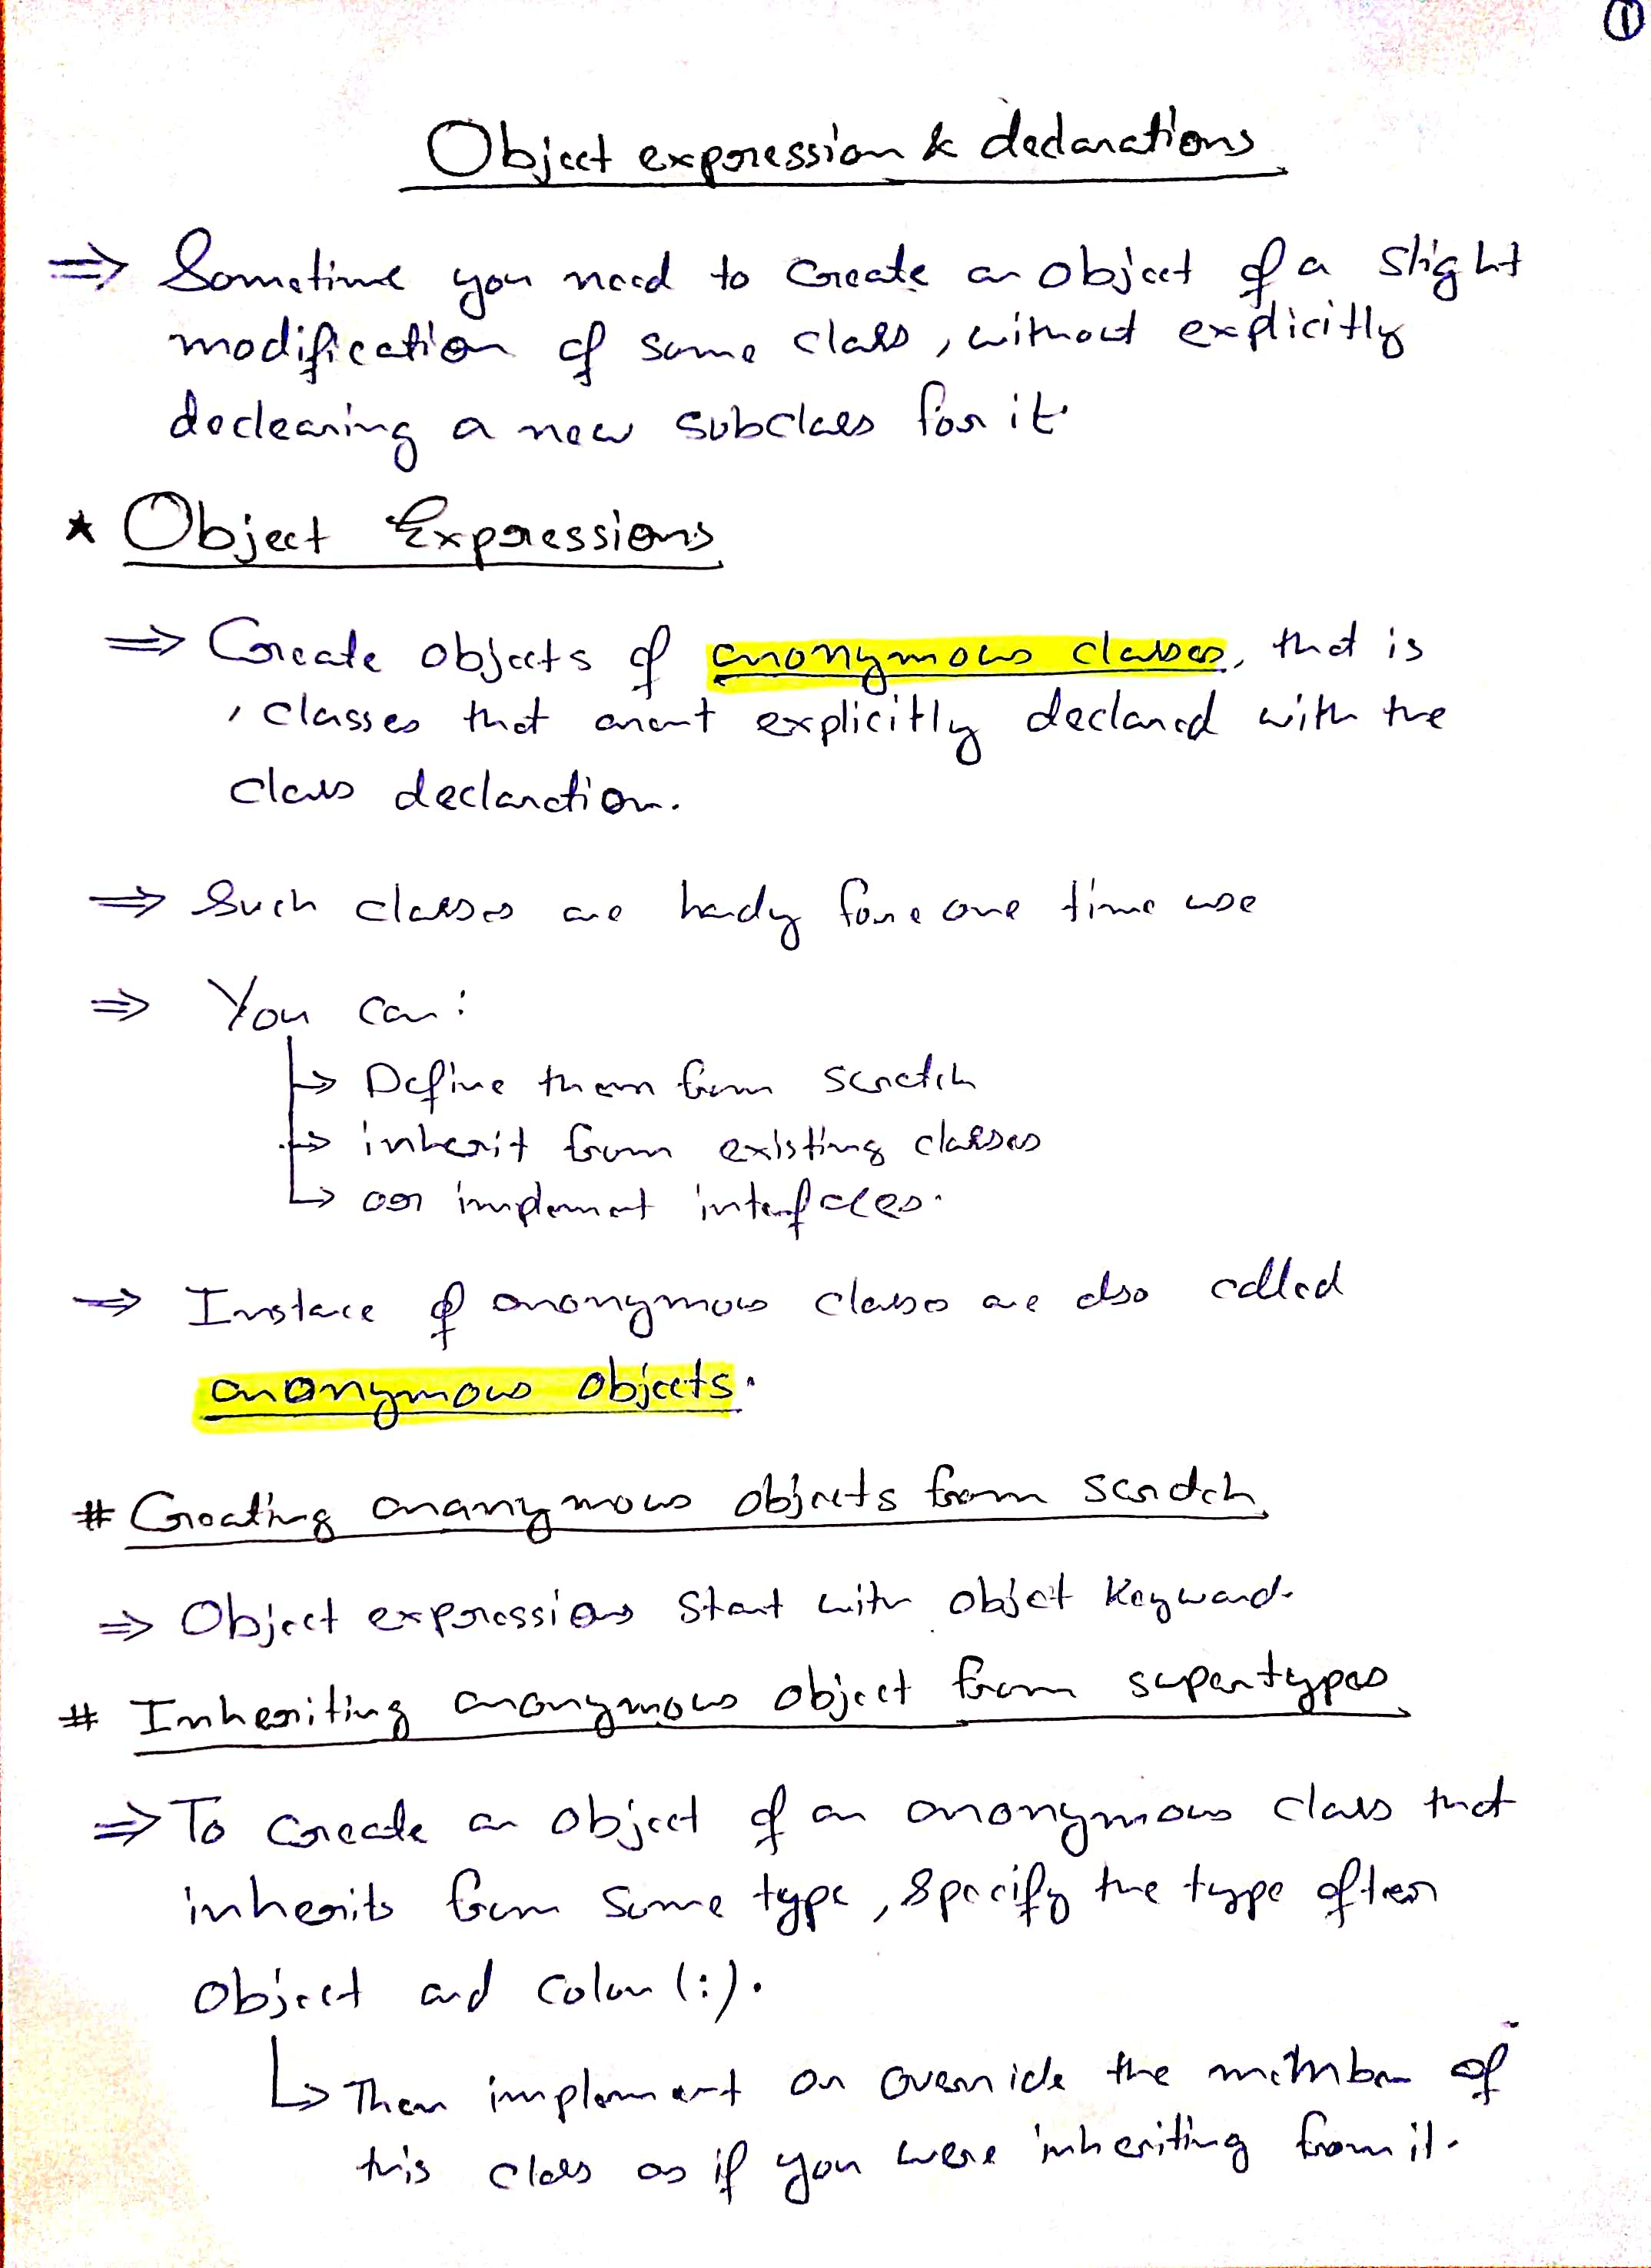 ①
Object expression & declarations
⇒ Sometime you need to create an object of a slight
modification of some class, without explicitly
declearing a new subclass for it.
★ Object Expressions
⇒ Create objects of anonymous classes, that is
, classes that arent explicitly declared with the
class declaration.
⇒ Such classes are handy for one time use
⇒ You can:
↳ Define them from scratch
↳ inherit from existing classes
↳ or implement interfaces.
⇒ Instace of anonymous classes are also called
anonymous objects.
# Creating ananymous objects from scratch
⇒ Object expressions start with object keyword.
# Inheriting anonymous object from supertypes
⇒ To create an object of an anonymous class that
inherits from some type, specify the type after
object and colon (:).
↳ Then implement or override the member of
this class as if you were inheriting from it.